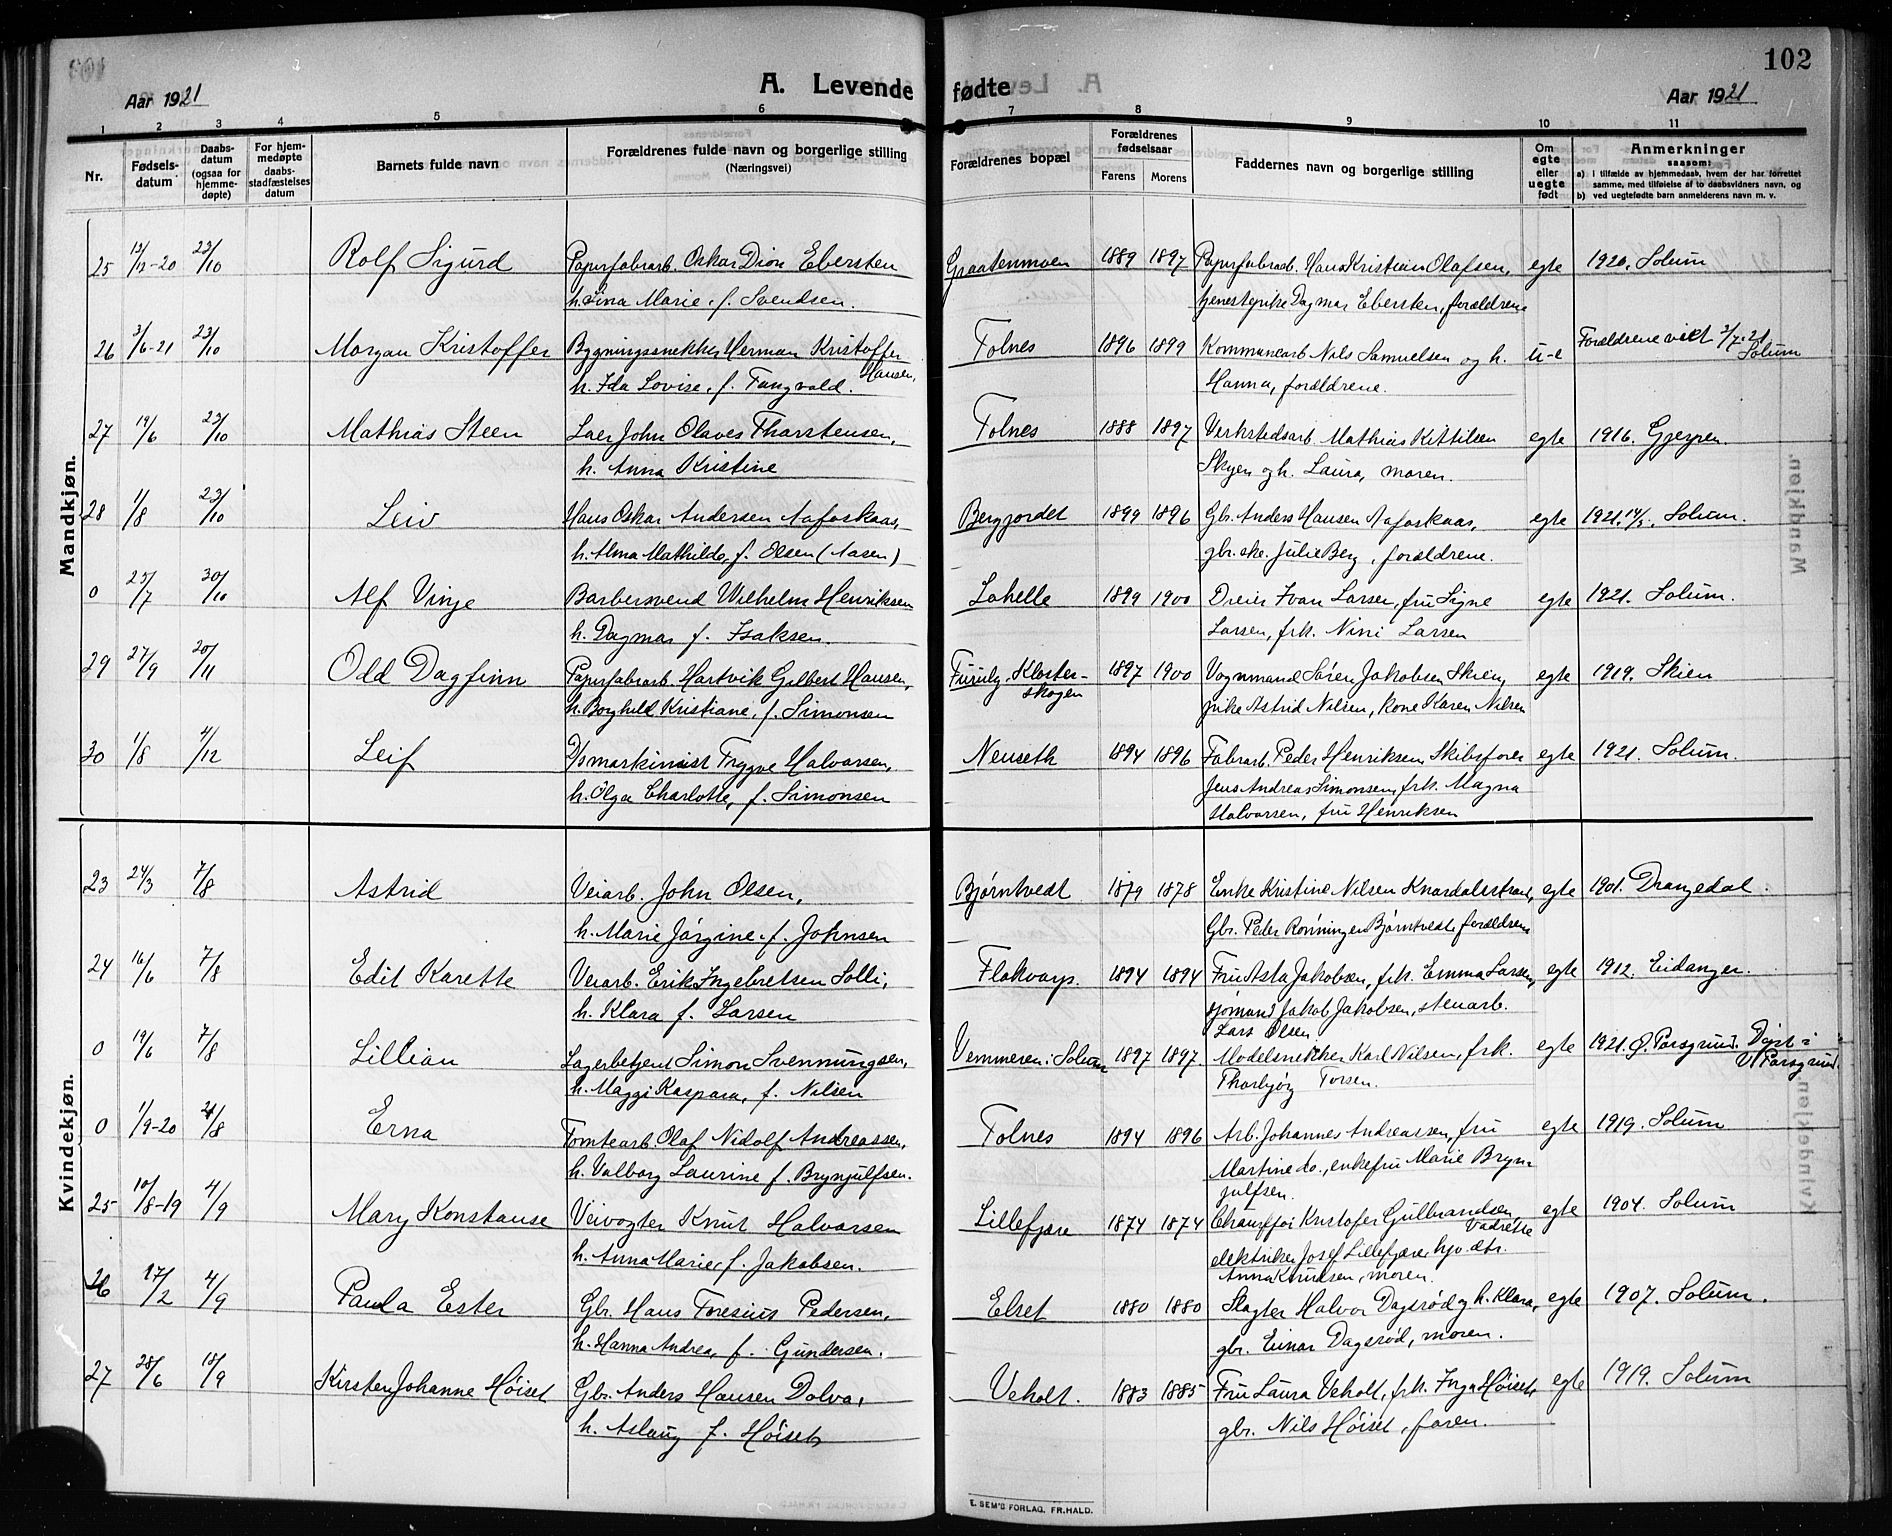 102
Aar 1921
A. Levende fødte
Aar 1921
1 2 3 4 5 6 7 8 9 10 11
Nr.
Fødselsdatum
Daabsdatum (ogsaa for hjemmedøpte)
For hjemmedøpte daabsstadfæstelses datum
Barnets fulde navn
Forældrenes fulde navn og borgerlige stilling
(Næringsvei)
Forældrenes bopæl
Forældrenes fødselsaar
Farens
Morens
Faddernes navn og borgerlige stilling
Om egte eller uegte født
Anmerkninger
saasom:
a) i tilfælde av hjemmedaab, hvem der har forrettet samme, med tilføielse af to daabsvidners navn, og
b) ved uegtefødte barn anmelderens navn m. v.
Mandkjøn.
25 13/12-20 23/10 Rolf Sigurd Papirfabrarb. Oskar Dion Ebersten Graatenmoen 1889 1897 Papirfabrarb. Hans Kristian Olafsen, egte 1920. Solum
h. Lina Marie, f. Svendsen. tjenestepike Dagmar Ebersten, forældrene
26 3/6-21 23/10 Morgan Kristoffer Bygningssnekker Herman Kristoffer Tolnes 1896 1899 Kommunearb. Nils Samuelsen og h. u-e Forældrene viet 2/7-21
Hansen, Solum
h. Ida Lovise, f. Tangvald. Hanna, forældrene.
27 19/6 23/10 Mathias Steen Laer John Olaves Tharstensen, Tolnes 1888 1897 Verkstedsarb Mathias Kittilsen egte 1916. Gjerpen.
h. Anna Kristine Skyen og h. Laura, moren.
28 1/8 23/10 Leiv Hans Oskar Andersen Aafoskaas, Bergjordet 1899 1896 Gbr. Anders Hansen Aafoskaas, egte 1921, Solum.
h. Alma Mathilde, f. Olsen (Aasen) gbr.ske. Julie Berg, forældrene.
0 25/7 30/10 Alf Vinje Barbersvend Wilhelm Henriksen Lahelle 1899 1900 Dreier Ivan Larsen, fru Signe egte 1921. Solum.
h. Dagmar f. Isaksen. Larsen, frk. Nini Larsen
29 27/9 20/11 Odd Dagfinn Papirfabrarb. Hartvik Gilbert Hansen, Furuly Klosterskogen 1897 1900 Vognmand Søren Jakobsen Skien, egte 1919. Skien
h. Borghild Kristiane, f. Simonsen pike Astrid Nilsen, kone Karen Nilsen
30 1/8 4/12 Leif Dsmaskinist Trygve Halvorsen, Nenseth 1894 1896 Fabrarb. Peder Henriksen, Skibsfører egte 1921. Solum.
h. Olga Charlotte, f. Simonsen Jens Andreas Simonsen, frk. Magna
Halvorsen, fru Henriksen
Kvindekjøn.
23 24/3 7/8 Astrid Veiarb. John Olsen, Bjørntvedt 1879 1878 Enke Kristine Nilsen Knardalsstrand, egte 1901. Drangedal.
h. Marie Jørgine, f. Johnsen Gbr. Peder Rønningen Bjørntvedt, forældrene
24 16/6 7/8 Edit Karette Veiarb. Erik Ingebretsen Solli, Flakvarp. 1894 1894 Fru Asta Jakobsen, frk. Emma Larsen, egte 1912. Eidanger.
h. Klara f. Larsen sjømand Jakob Jakobsen, stenarb.
Lars Olsen
0 19/6 7/8 Lillian Lagerbetjent Simon Svenningsen, Vemmeren i Solum 1897 1897. Modelsnekker Karl Nilsen, frk. egte 1921. Ø. Porsgrund. Døpt i
V. Porsgrund.
h. Maggi Kaspara, f. Nilsen Thorbjørg Torsen.
0 1/9-20 21/8 Erna Tomtearb. Olaf Nidolf Andreassen, Tolnes 1894 1896 Arb. Johannes Andreassen, fru egte 1919. Solum
h. Valborg Laurine f. Brynjulfsen. Martine do., enkefru Marie Brynjulfsen.
25 10/8-19 4/9 Mary Konstanse Veivogter Knut Halvorsen Lillefjære 1874 1874 Chauffør Kristofer Gulbrandsen, egte 1904. Solum
h. Anna Marie, f. Jakobsen. elektriker Josef Lillefjære, hjv. dtr.
Anna Knudsen, moren.
26 17/2 4/9 Paula Ester Gbr. Hans Foresius Pedersen, Elset 1880 1880 Slagter Halvor Dagsrød og h. Klara, egte 1907. Solum.
h. Hanna Andrea, f. Gundersen. gbr. Einar Dagsrød, moren.
27 28/6 18/9 Kirsten Johanne Høiset Gbr. Anders Hansen Dolva, Veholt. 1883 1885 Fru Laura Veholt, frk. Inga Høiset, egte 1919. Solum
h. Aslaug f. Høiset gbr. Nils Høiset, faren.
E. SEM'S FORLAG. FR.HALD.